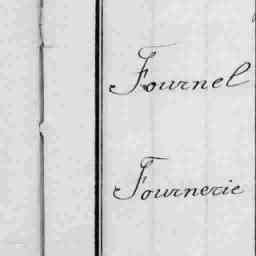 Fournel
Fournerie